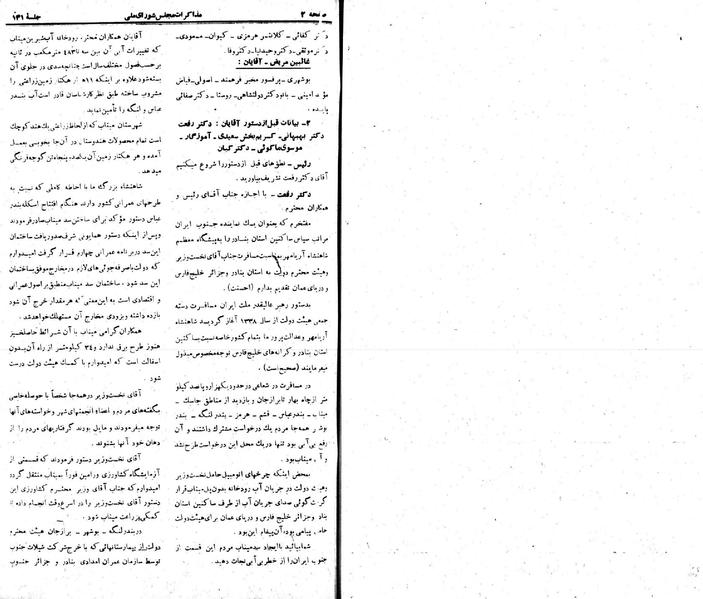 صفحه ۲
مذاکرات مجلس شورای ملی
جلسهٔ ۱۳۱
دکتر کفائی - کلانتر هرمزی - کیوان - مسعودی-
دکتر موثقی - دکتر وحیدنیا - دکتر وفا.
غائبین مریض - آقایان:
بوشهری - پرفسور مخبر فرهمند - اصولی - فیاض
۲- بیانات قبل از دستور آقایان: دکتر رفعت
دکتر بهبهانی - کریم‌بخش سعیدی - آموزگار -
موسوی ماکوئی - دکتر کیان
رئیس - نطق‌های قبل از دستور را شروع میکنیم
آقای دکتر رفعت تشریف بیاورید.
دکتر رفعت - با اجازه جناب آقای رئیس و
همکاران محترم.
مفتخرم که بعنوان یک نماینده جنوب ایران
مراتب سپاس ساکنین استان بنادر را به پیشگاه معظم
شاهنشاه آریامهر بمناسبت مسافرت جناب آقای نخست‌وزیر
وهیئت محترم دولت به استان بنادر وجزائر خلیج‌فارس
و دریای عمان تقدیم بدارم (احسنت).
بدستور رهبر عالیقدر ملت ایران مسافرت دسته
جمعی هیئت دولت از سال ۱۳۳۸ آغاز گردید شاهنشاه
آریامهر وعدالت‌پرور ما بتمام کشور خاصه نسبت بساکنین
استان بنادر و کرانه‌های خلیج‌فارس توجه مخصوص مبذول
میفرمایند (صحیح‌است).
در مسافرت در شعاعی درحدود یکهزار و پانصد کیلو
متر از چاه بهار تا برازجان و بازدید از مناطق جاسک -
میناب - بندرعباس - قشم - هرمز - بندر لنگه - بندر
بوشهر همه‌جا مردم یک درخواست مشترک داشتند و آن
رفع بی‌آبی بود تنها در یک محل این درخواست طرح نشد
و آن میناب بود.
بمحض اینکه چرخهای اتومبیل حامل نخست‌وزیر
وهیئت دولت در جریان آب رودخانه بدون پل میناب قرار
گرفت گوئی صدای جریان آب از طرف ساکنین استان
بنادر وجزائر خلیج فارس و دریای عمان برای هیئت دولت
حامل پیامی بود آن پیغام این بود.
شما بیائید با ایجاد سد میناب مردم این قسمت از
جنوب ایران را از خطر بی‌آبی نجات دهید.
آقایان همکاران محترم، رودخانه آب‌شیرین میناب
که تغییرات آبی آن بین سه تا ۴۸۳ مترمکعب در ثانیه
برحسب فصول مختلف سال است چنانچه سدی در جلوی آن
بسته شود علاوه بر اینکه ۱۱ هزار هکتار زمین زراعتی را
مشروب ساخته طبق نظر کارشناسان قادر است آب بندر
عباس و لنگه را تأمین نماید.
شهرستان میناب که از لحاظ زراعتی یک هند کوچک
است تمام محصولات هندوستان در آن جا بخوبی بعمل
آمده و هر هکتار زمین آن یکصد و پنجاه تن گوجه فرنگی
میدهد.
شاهنشاه بزرگ ما با احاطه کاملی که نسبت به
طرحهای عمرانی کشور دارند هنگام افتتاح اسکله بندر
عباس دستور مؤکد برای ساختن سد میناب صادر فرمودند
وپس از اینکه دستور همایونی شرف صدور یافت ساختمان
این سد در برنامه عمرانی چهارم قرار گرفت امیدوارم
که دولت باصرفه‌جوئی‌های لازم در مخارج موفق بساختمان
این سد شود، ساختمان سد میناب منطبق بر اصول عمرانی
و اقتصادی است به این معنی که هر مقدار خرج آن شود
بازده داشته وبزودی مخارج آن مستهلک خواهد شد.
همکاران گرامی میناب با آن شرائط حاصلخیز
هنوز طرح برق ندارد و ۳۴ کیلومتر از راه آن بدون
اسفالت است که امیدوارم با کمک هیئت دولت درست
شود.
آقای نخست‌وزیر در همه‌جا شخصاً با حوصله خاصی
بگفته‌های مردم و اعضاء انجمنهای شهر وخواسته‌های آنها
توجه میفرمودند و مایل بودند گرفتاریهای مردم را از
دهان خود آنها بشنوند.
آقای نخست‌وزیر دستور فرمودند که قسمتی از
آزمایشگاه کشاورزی ورامین فوراً بمیناب منتقل گردد
امیدوارم که جناب آقای وزیر محترم کشاورزی این
دستور آقای نخست‌وزیر را در اسرع وقت انجام داده تا
کمکی بزراعت میناب شود.
دربندر لنگه - بوشهر - برازجان هیئت محترم
دولت از بیمارستانهائی که با خرج شرکت شیلات جنوب
توسط سازمان عمران امدادی بنادر و جزائر جنوب